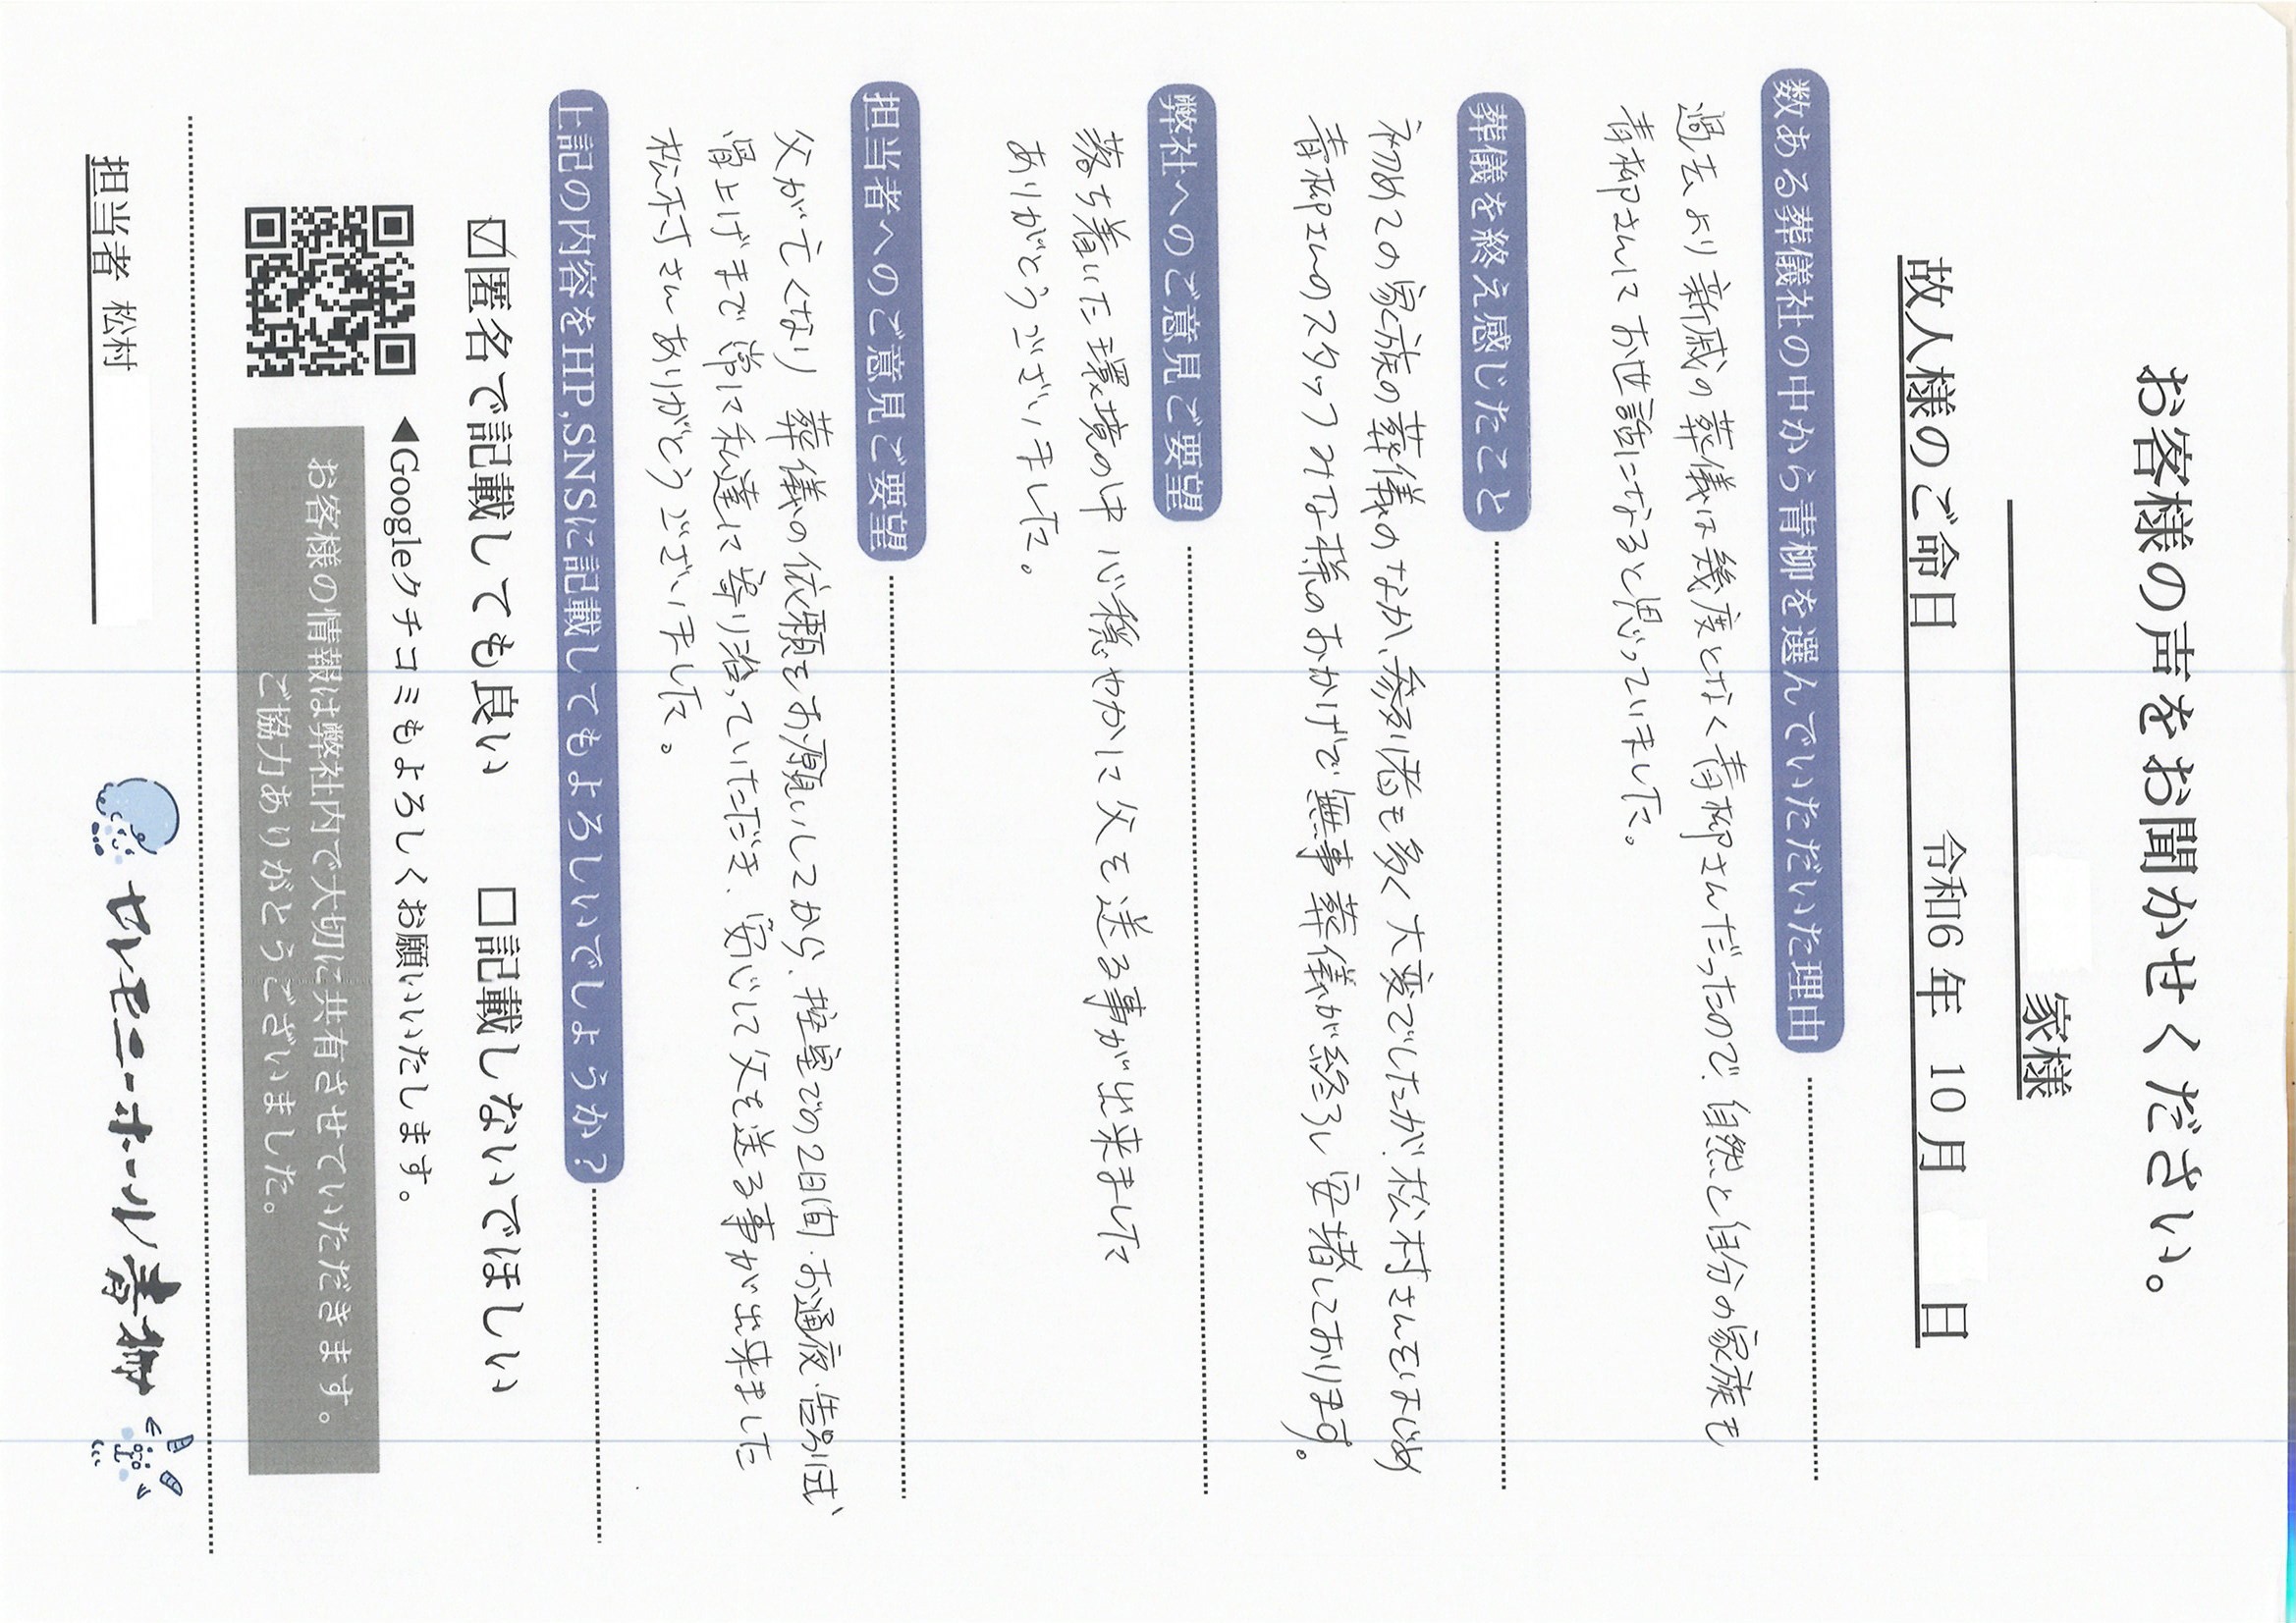 お客様の声をお聞かせください。
家様
故人様のご命日 令和6年 10月 日
数ある葬儀社の中から青柳を選んでいただいた理由
過去より親戚の葬儀は幾度となく青柳さんだったので、自然と自分の家族も
青柳さんにお世話になると思っていました。
葬儀を終え感じたこと
初めての家族の葬儀のなか、参列者も多く大変でしたが、松村さんをはじめ
青柳さんのスタッフみな様のおかげで無事葬儀が終了し安堵しております。
弊社へのご意見ご要望
落ち着いた環境の中 心穏やかに父を送る事が出来ました
ありがとうございました。
担当者へのご意見ご要望
父が亡くなり 葬儀の依頼をお願いしてから、控室での2日間・お通夜・告別式
湯上げまで常に私達に寄り沿っていただき、安心して父を送る事が出来ました
松村さんありがとうございました。
上記の内容をHP,SNSに記載してもよろしいでしょうか?
☑匿名で記載しても良い □記載しないでほしい
◀Googleクチコミもよろしくお願いいたします。
お客様の情報は弊社内で大切に共有させていただきます。
ご協力ありがとうございました。
担当者 松村
セレモニーホール青柳